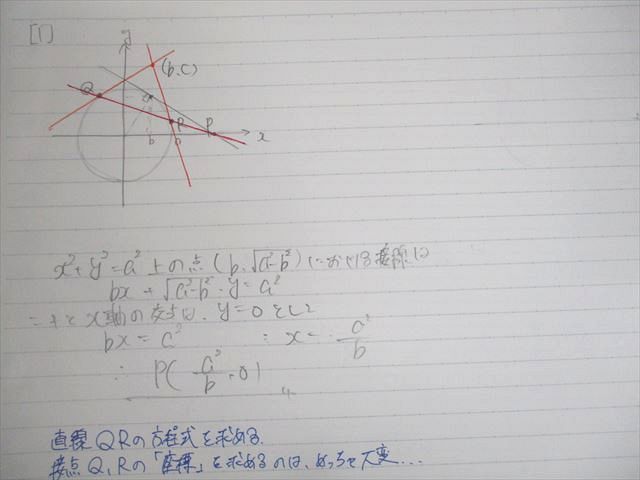 [1]
y
(b,C)
Q
R
P
b
a
x
x²+y²=a²上の点(b,√a²-b²)における接線は
bx+√a²-b²・y=a²
これとx軸の交点は、y=0として
bx=a² ∴ x=a²/b
∴ P(a²/b,0)
直線QRの方程式を求める。
接点Q,Rの「座標」を求めるのは、めっちゃ大変...